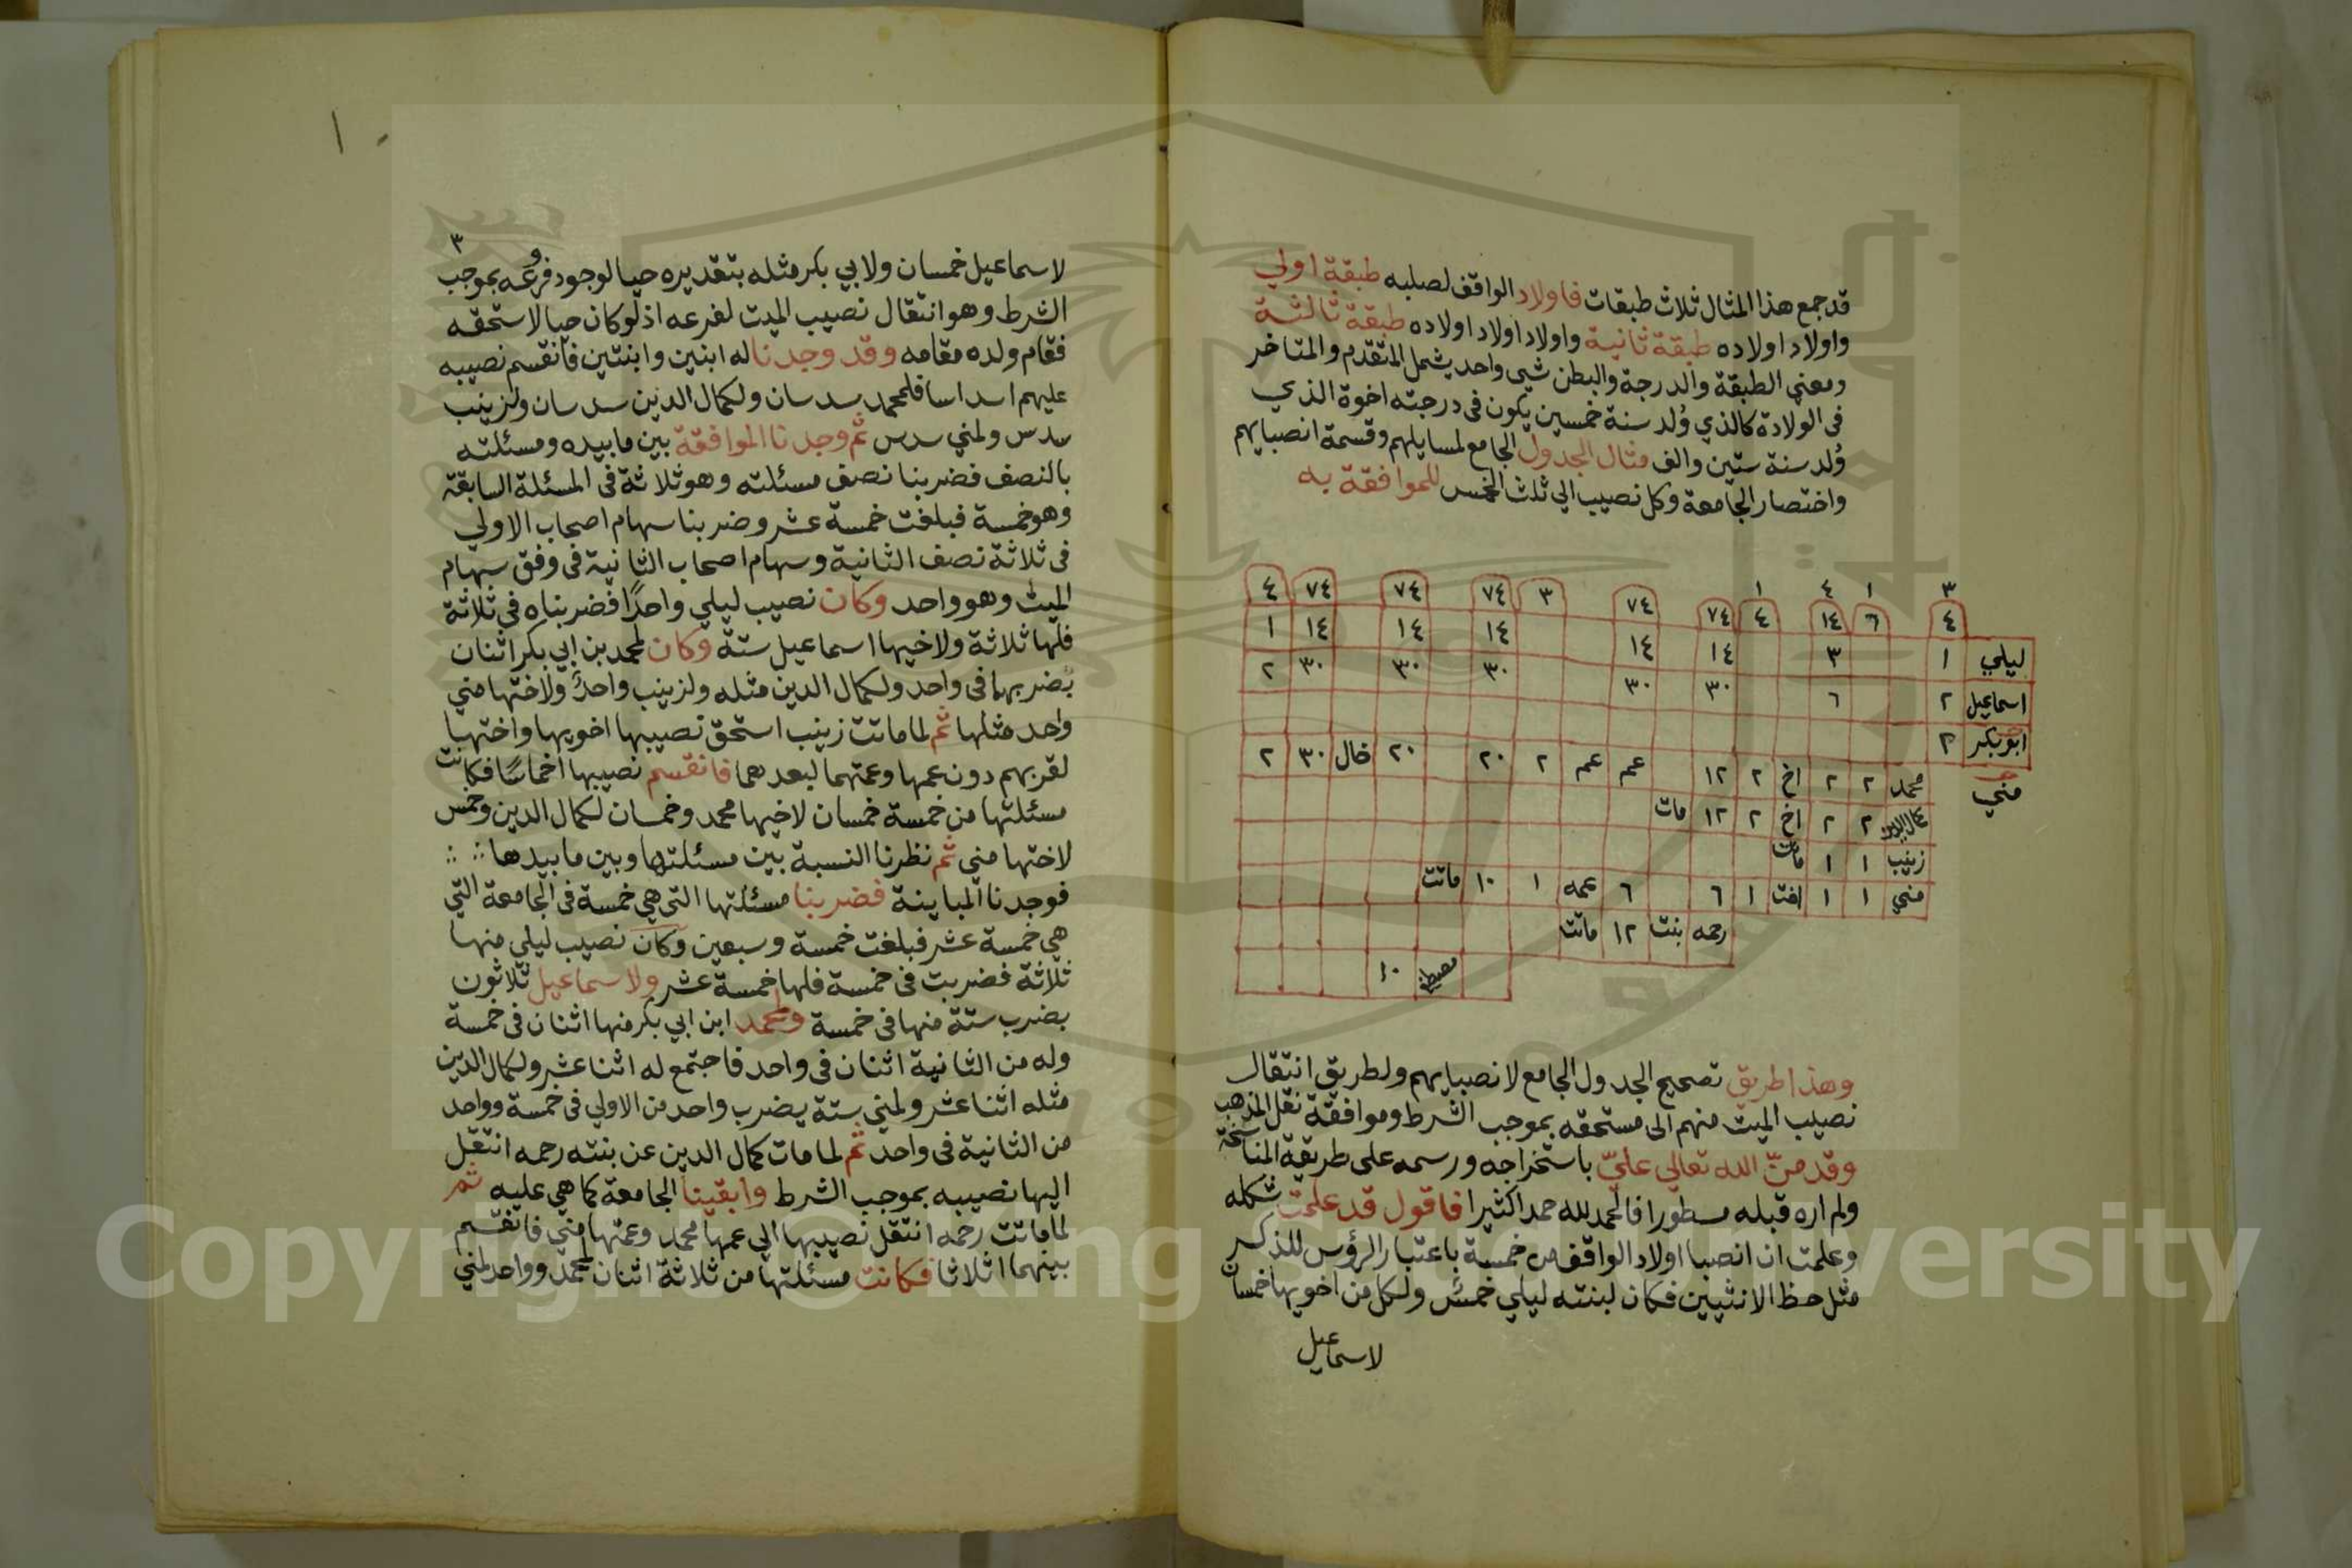 قد جمع هذا المثال ثلاث طبقات فاولاد الواقف لصلبه طبقة اولي
واولاد اولاده طبقة ثانية واولاد اولاد اولاده طبقة ثالثة
ومعني الطبقة والدرجة والبطن شي واحد يشمل المتقدم والمتاخر
في الولادة كالذي وُلد سنة خمسين يكون في درجته اخوة الذي
وُلد سنة ستين والف مثال الجدول الجامع لمسايلهم وقسمة انصبايهم
واختصار الجامعة وكل نصيب الي ثلث الخمس للموافقة به
٣ ١ ٤ ١
٤ ٦ ١٤ ٤ ٧٤ ٧٤ ٣ ٧٤ ٧٤ ٧٤ ٤
ليلي ١ ٣ ١٤ ١٤ ١٤ ١٤ ١٤ ١
اسماعيل ٢ ٦ ٣٠ ٣٠ ٣٠ ٣٠ ٣٠ ٢
ابوبكر ٢
مني
محمد ٢ ٢ اخ ٢ ١٢ عم عم ٢ ٢٠ ٢٠ خال ٣٠ ٢
كمال الدين ٢ ٢ اخ ٢ ١٢ مات
زينب ١ ١ ماتت
مني ١ ١ اخت ١ ٦ ٦ عمه ١ ١٠ ماتت
رحمه بنت ١٢ ماتت
١٠
وهذا طريق تصحيح الجدول الجامع لانصبايهم ولطريق انتقال
نصيب الميت منهم الى مستحقه بموجب الشرط وموافقة نقل المذهب
وقد منّ الله تعالي عليّ باستخراجه ورسمه على طريقة المناسخة
ولم اره قبله مسطورا فالحمد لله حمدا كثيرا فاقول قد علمت شكله
وعلمت ان انصبا اولاد الواقف من خمسة باعتبار الرؤس للذكر
مثل حظ الانثيين فكان لبنته ليلي خمسٌ ولكل من اخويها خمسان
لاسماعيل
٣
لاسماعيل خمسان ولابي بكر مثله بتقديره حيا لوجود فروعه بموجب
الشرط وهو انتقال نصيب الميت لفرعه اذ لو كان حيا لاستحقه
فقام ولده مقامه وقد وجدنا له ابنين وابنتين فانقسم نصيبه
عليهم اسداسا فلمحمد سدسان ولكمال الدين سدسان ولزينب
سدس ولمني سدس ثم وجدنا الموافقة بين مابيده ومسئلته
بالنصف فضربنا نصف مسئلته وهو ثلاثة في المسئلة السابقة
وهو خمسة فبلغت خمسة عشر وضربنا سهام اصحاب الاولي
في ثلاثة نصف الثانية وسهام اصحاب الثانية في وفق سهام
الميت وهو واحد وكان نصيب ليلي واحدًا فضربناه في ثلاثة
فلها ثلاثة ولاخيها اسماعيل ستة وكان لمحمد بن ابي بكر اثنان
بضربهما في واحد ولكمال الدين مثله ولزينب واحدٌ ولاختها مني
واحد مثلها ثم لما ماتت زينب استحق نصيبها اخويها واختها
لقربهم دون عمها وعمتهما لبعدهما فانقسم نصيبها اخماسًا فكانت
مسئلتها من خمسة خمسان لاخيها محمد وخمسان لكمال الدين وخمس
لاختها مني ثم نظرنا النسبة بين مسئلتها وبين مابيدها
فوجدنا المباينة فضربنا مسئلتها التي هي خمسة في الجامعة التي
هي خمسة عشر فبلغت خمسة وسبعين وكان نصيب ليلي منها
ثلاثة فضربت في خمسة فلها خمسة عشر ولاسماعيل ثلاثون
بضرب ستة منها في خمسة ولمحمد ابن ابي بكر منها اثنان في خمسة
وله من الثانية اثنان في واحد فاجتمع له اثنا عشر ولكمال الدين
مثله اثنا عشر ولمني ستة بضرب واحد من الاولي في خمسة وواحد
من الثانية في واحد ثم لما مات كمال الدين عن بنته رحمه انتقل
اليها نصيبه بموجب الشرط وابقينا الجامعة كما هي عليه ثم
لما ماتت رحمه انتقل نصيبها الي عمها محمد وعمتها مني فانقسم
بينهما اثلاثا فكانت مسئلتها من ثلاثة اثنان لمحمد وواحد لمني
Copyright © King Saud University